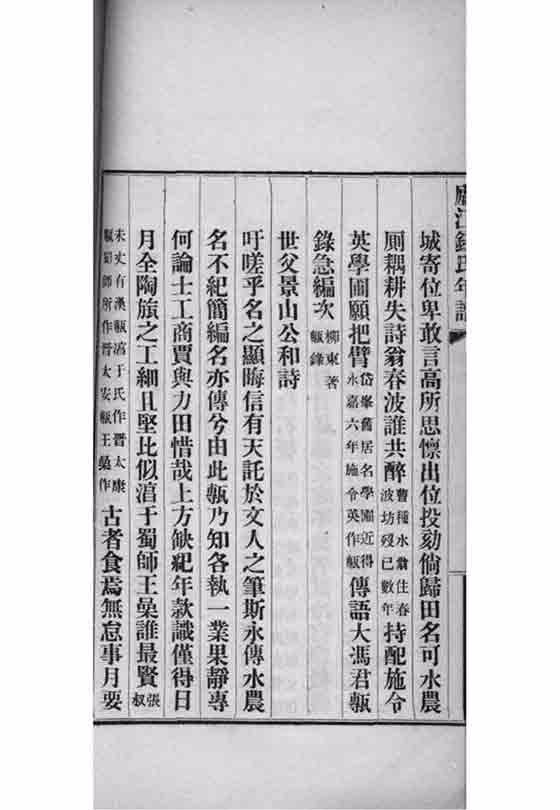 廬江錢氏年譜
城寄位卑敢言高所思懍出位投劾倘歸田名可水農
厠耦耕失詩翁春波誰共醉曹種水翁住春波坊歿已數年持配施令
英學圃願把臂岱峯舊居名學圃近得永嘉六年施令英作甎傳語大馮君甎
錄急編次柳東著甎錄
世父景山公和詩
吁嗟乎名之顯晦信有天託於文人之筆斯永傳水農
名不紀簡編名亦傳兮由此甎乃知各執一業果靜專
何論士工商賈與力田惜哉上方缺紀年款識僅得日
月全陶旊之工細且堅比似湻于蜀師王誰最賢張叔
未丈有漢甎湻于氏作晉太康甎蜀師所作晉太安甎王作古者食焉無怠事月要